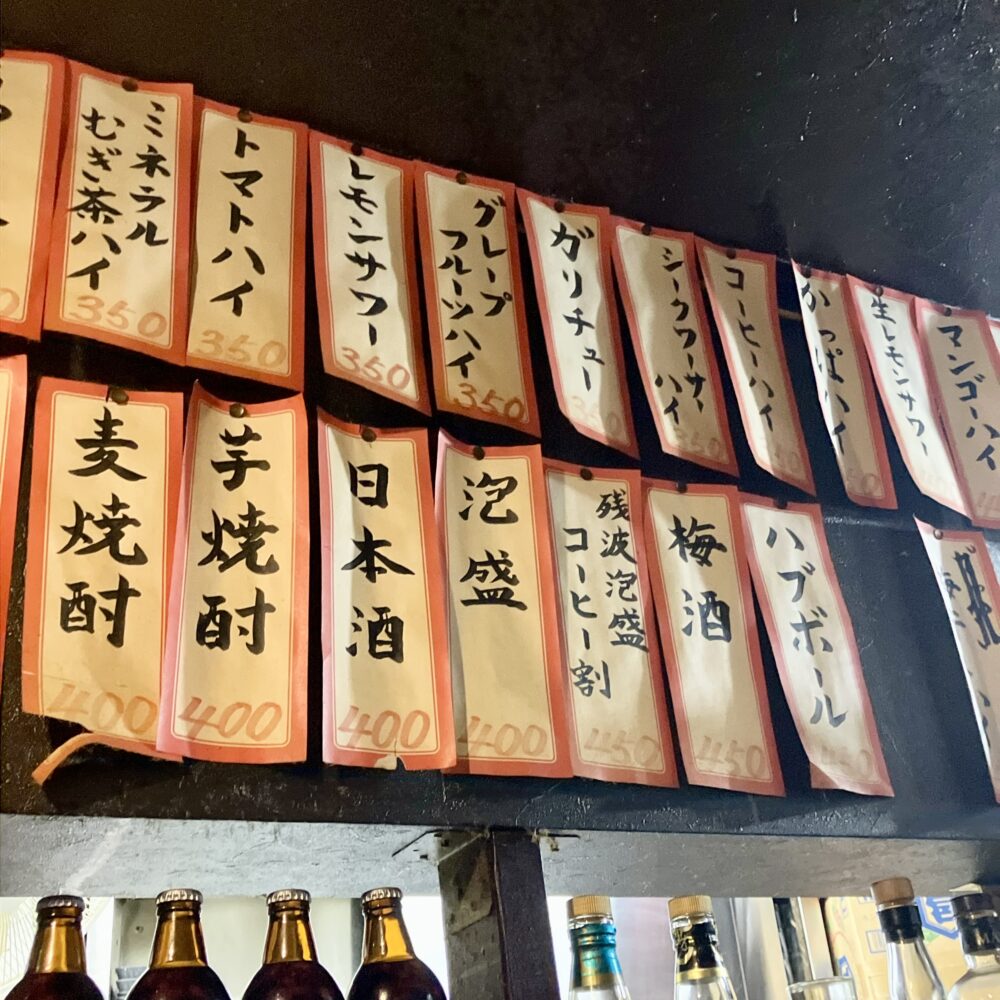 ミネラル
むぎ茶ハイ
350
トマトハイ
350
レモンサワー
350
グレープ
フルーツハイ
350
ガリチュー
350
シークワーサー
ハイ
350
コーヒーハイ
かっぱハイ
生レモンサワー
マンゴーハイ
麦焼酎
400
芋焼酎
400
日本酒
400
泡盛
400
残波泡盛
コーヒー割
450
梅酒
450
ハブボール
450